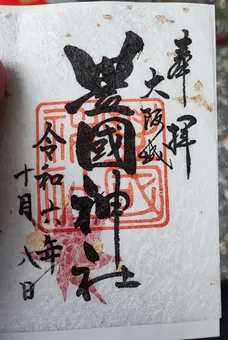 奉拝
大阪城
豊國神社
令和六年
十月八日